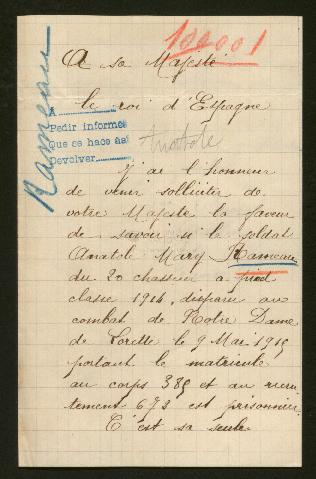 100001
A sa Majesté
le roi d'Espagne
Rameau
A
Pedir informes
Que se hace así
Devolver
Anatole
j'ai l'honneur
de venir solliciter de
votre Majesté la faveur
de savoir si le soldat
Anatole Mary Rameau
du 20 chassier a pied
classe 1914, disparu au
combat de Notre Dame
de Lorette le 9 Mai 1915
portant le matricule
au corps 389 et au recru
tement 673 est prisonnier.
C'est sa seule